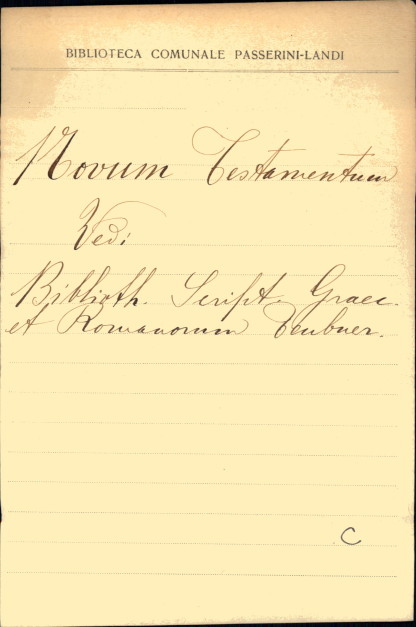 BIBLIOTECA COMUNALE PASSERINI-LANDI
Novum Testamentum
Vedi
Biblioth. Script. Graec.
et Romanorum Teubner.
C